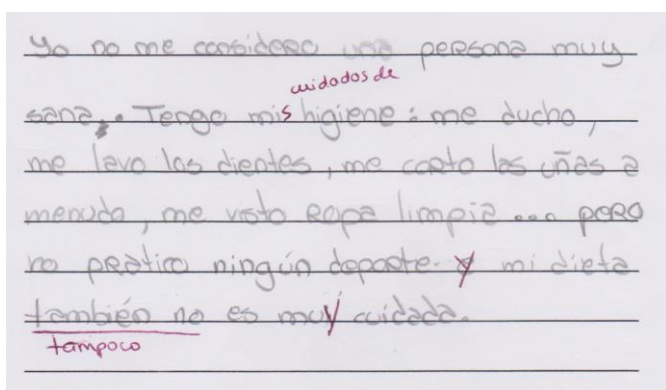 Yo no me considero una persona muy
cuidados de
sana. Tengo mis higiene: me ducho,
me lavo los dientes, me corto las uñas a
menudo, me visto ropa limpia ... pero
no pratico ningún deporte. y mi dieta
también no es muy cuidada.
tampoco